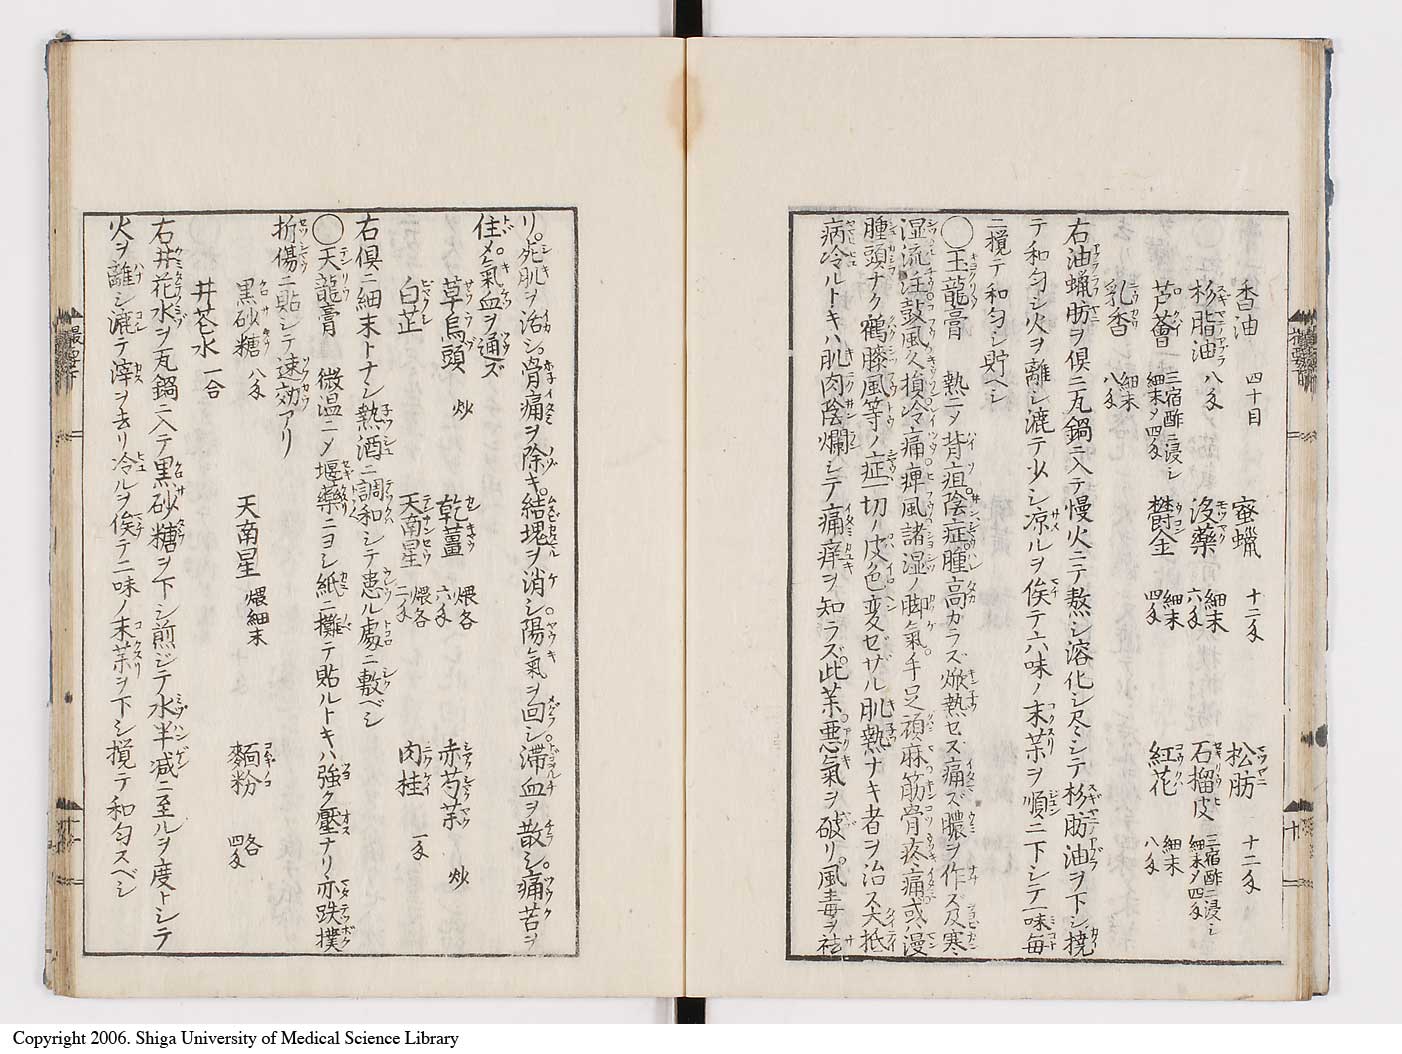 香油 四十目 蜜蝋 十二匁 松肪 十二匁
杉脂油 八匁 没藥 細末 六匁 石榴皮 三宿酢ニ浸シ 細末メ四匁
芦薈 三宿酢ニ浸シ 細末メ四匁 欝金 細末 四匁 紅花 細末 八匁
乳香 細末 八匁
右油蝋肪ヲ倶ニ瓦鍋ニ入テ慢火ニテ熬シ溶化シ尽シテ杉肪油ヲ下シ撓
テ和匀シ火ヲ離シ漉テ少シ凉ルヲ俟テ六味ノ末薬ヲ順ニ下シテ一味毎
ニ攪テ和匀シ貯ヘシ
◯玉龍膏 熱ニメ背疽陰症腫高カラズ焮熱セス痛ズ膿ヲ作ズ及寒
湿流注鼓風久損冷痛痺風諸湿ノ脚氣手足頑麻筋骨疼痛或ハ漫
腫頭ナク鶴膝風等ノ症一切ノ皮色変ゼザル肌熱ナキ者ヲ治ス大抵
病冷ルトキハ肌肉陰爛シテ痛痒ヲ知ラズ此薬悪氣ヲ破リ風毒ヲ祛
リ。死肌ヲ活シ。骨痛ヲ除キ。結塊ヲ消シ。陽氣ヲ回シ。滞血ヲ散シ。痛苦ヲ
住メ。氣血ヲ通ズ
草烏頭 炒 乾薑 煨各 六匁 赤芍薬 炒
白芷 天南星 煨各 二匁 肉桂 一匁
右倶ニ細末トナシ熱酒ニ調和シテ患ル處ニ敷ベシ
◯天龍膏 微温ニメ堰藥ニヨシ紙ニ攤テ貼ルトキハ強ク壓ナリ亦跌撲
折傷ニ貼シテ速効アリ
黒砂糖 八匁 天南星 煨細末 麵粉 各 四匁
井花水 一合
右井花水ヲ瓦鍋ニ入テ黒砂糖ヲ下シ煎ジテ水半减ニ至ルヲ度トシテ
火ヲ離シ漉テ滓ヲキリ冷ルヲ俟テ二味ノ末薬ヲ下シ攪テ和匀スベシ
十
Copyright 2006. Shiga University of Medical Science Library